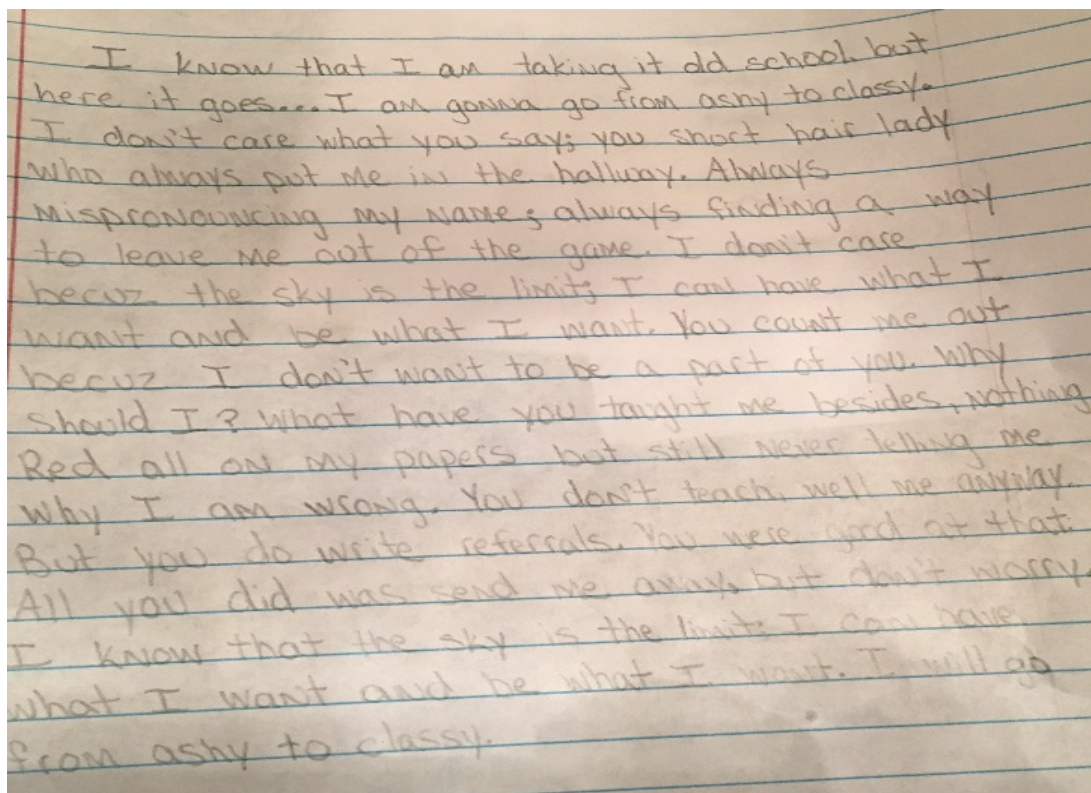 I know that I am taking it old school, but
here it goes... I am gonna go from ashy to classy.
I don't care what you say; you short hair lady
who always put me in the hallway. Always
mispronouncing my name; always finding a way
to leave me out of the game. I don't care
becuz the sky is the limit; I can have what I
want and be what I want. You count me out
becuz I don't want to be a part of you. Why
should I? What have you taught me besides, nothing
Red all on my papers but still never telling me
why I am wrong. You don't teach, well me anyway.
But you do write referrals. You were good at that.
All you did was send me away, but don't worry,
I know that the sky is the limit; I can have
what I want and be what I want. I will go
from ashy to classy.